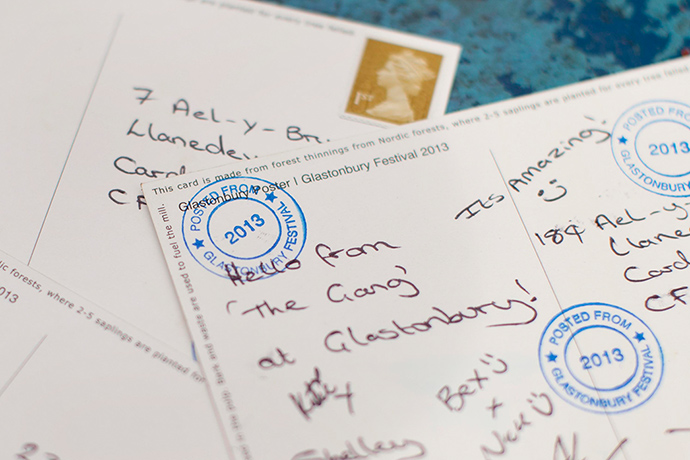 7 Ael-y-Br
Llanede
Card
CF
1ST
This card is made from forest thinnings from Nordic forests, where 2-5 saplings are planted for every tree felled
Glastonbury Poster | Glastonbury Festival 2013
POSTED FROM
2013
GLASTONBURY FESTIVAL
Hello from
'The Gang'
at Glastonbury!
It's Amazing!
Bex
x
Nick
Shelley
184 Ael-y-
Llane
Card
CF
POSTED FROM
2013
GLASTONBURY FESTIVAL
POSTED FROM
2013
GLASTONBURY FESTIVAL
Bark and waste are used to fuel the mill.
Nordic forests, where 2-5 saplings are planted for
2013